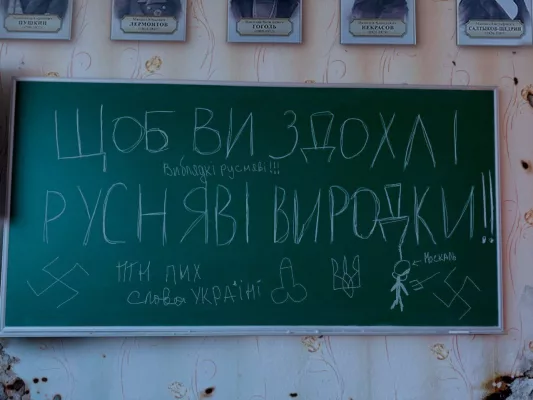 ПУШКИН
ЛЕРМОНТОВ
ГОГОЛЬ
НЕКРАСОВ
САЛТЫКОВ-ЩЕДРИН
ЩОБ ВИ ЗДОХЛІ
Виблядкі русняві!!!
РУСНЯВІ ВИРОДКИ!!
← Москаль
ПТН ПНХ
Слава УКРАЇНІ